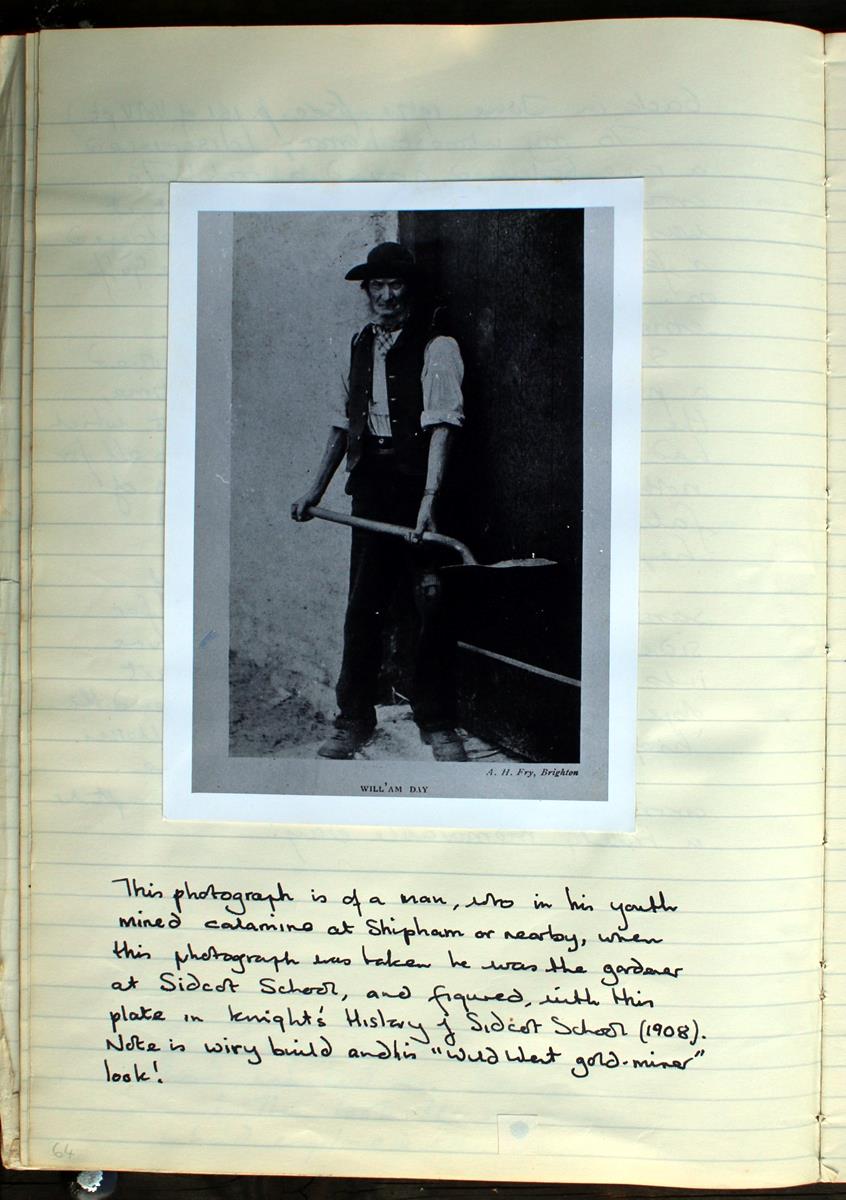 A. H. Fry, Brighton
WILL'AM DAY
This photograph is of a man, who in his youth
mined calamine at Shipham or nearby, when
this photograph was taken he was the gardener
at Sidcot School, and figured, with this
plate in Knight's History of Sidcot School (1908).
Note is wiry build and his "Wild West gold-miner"
look!
64